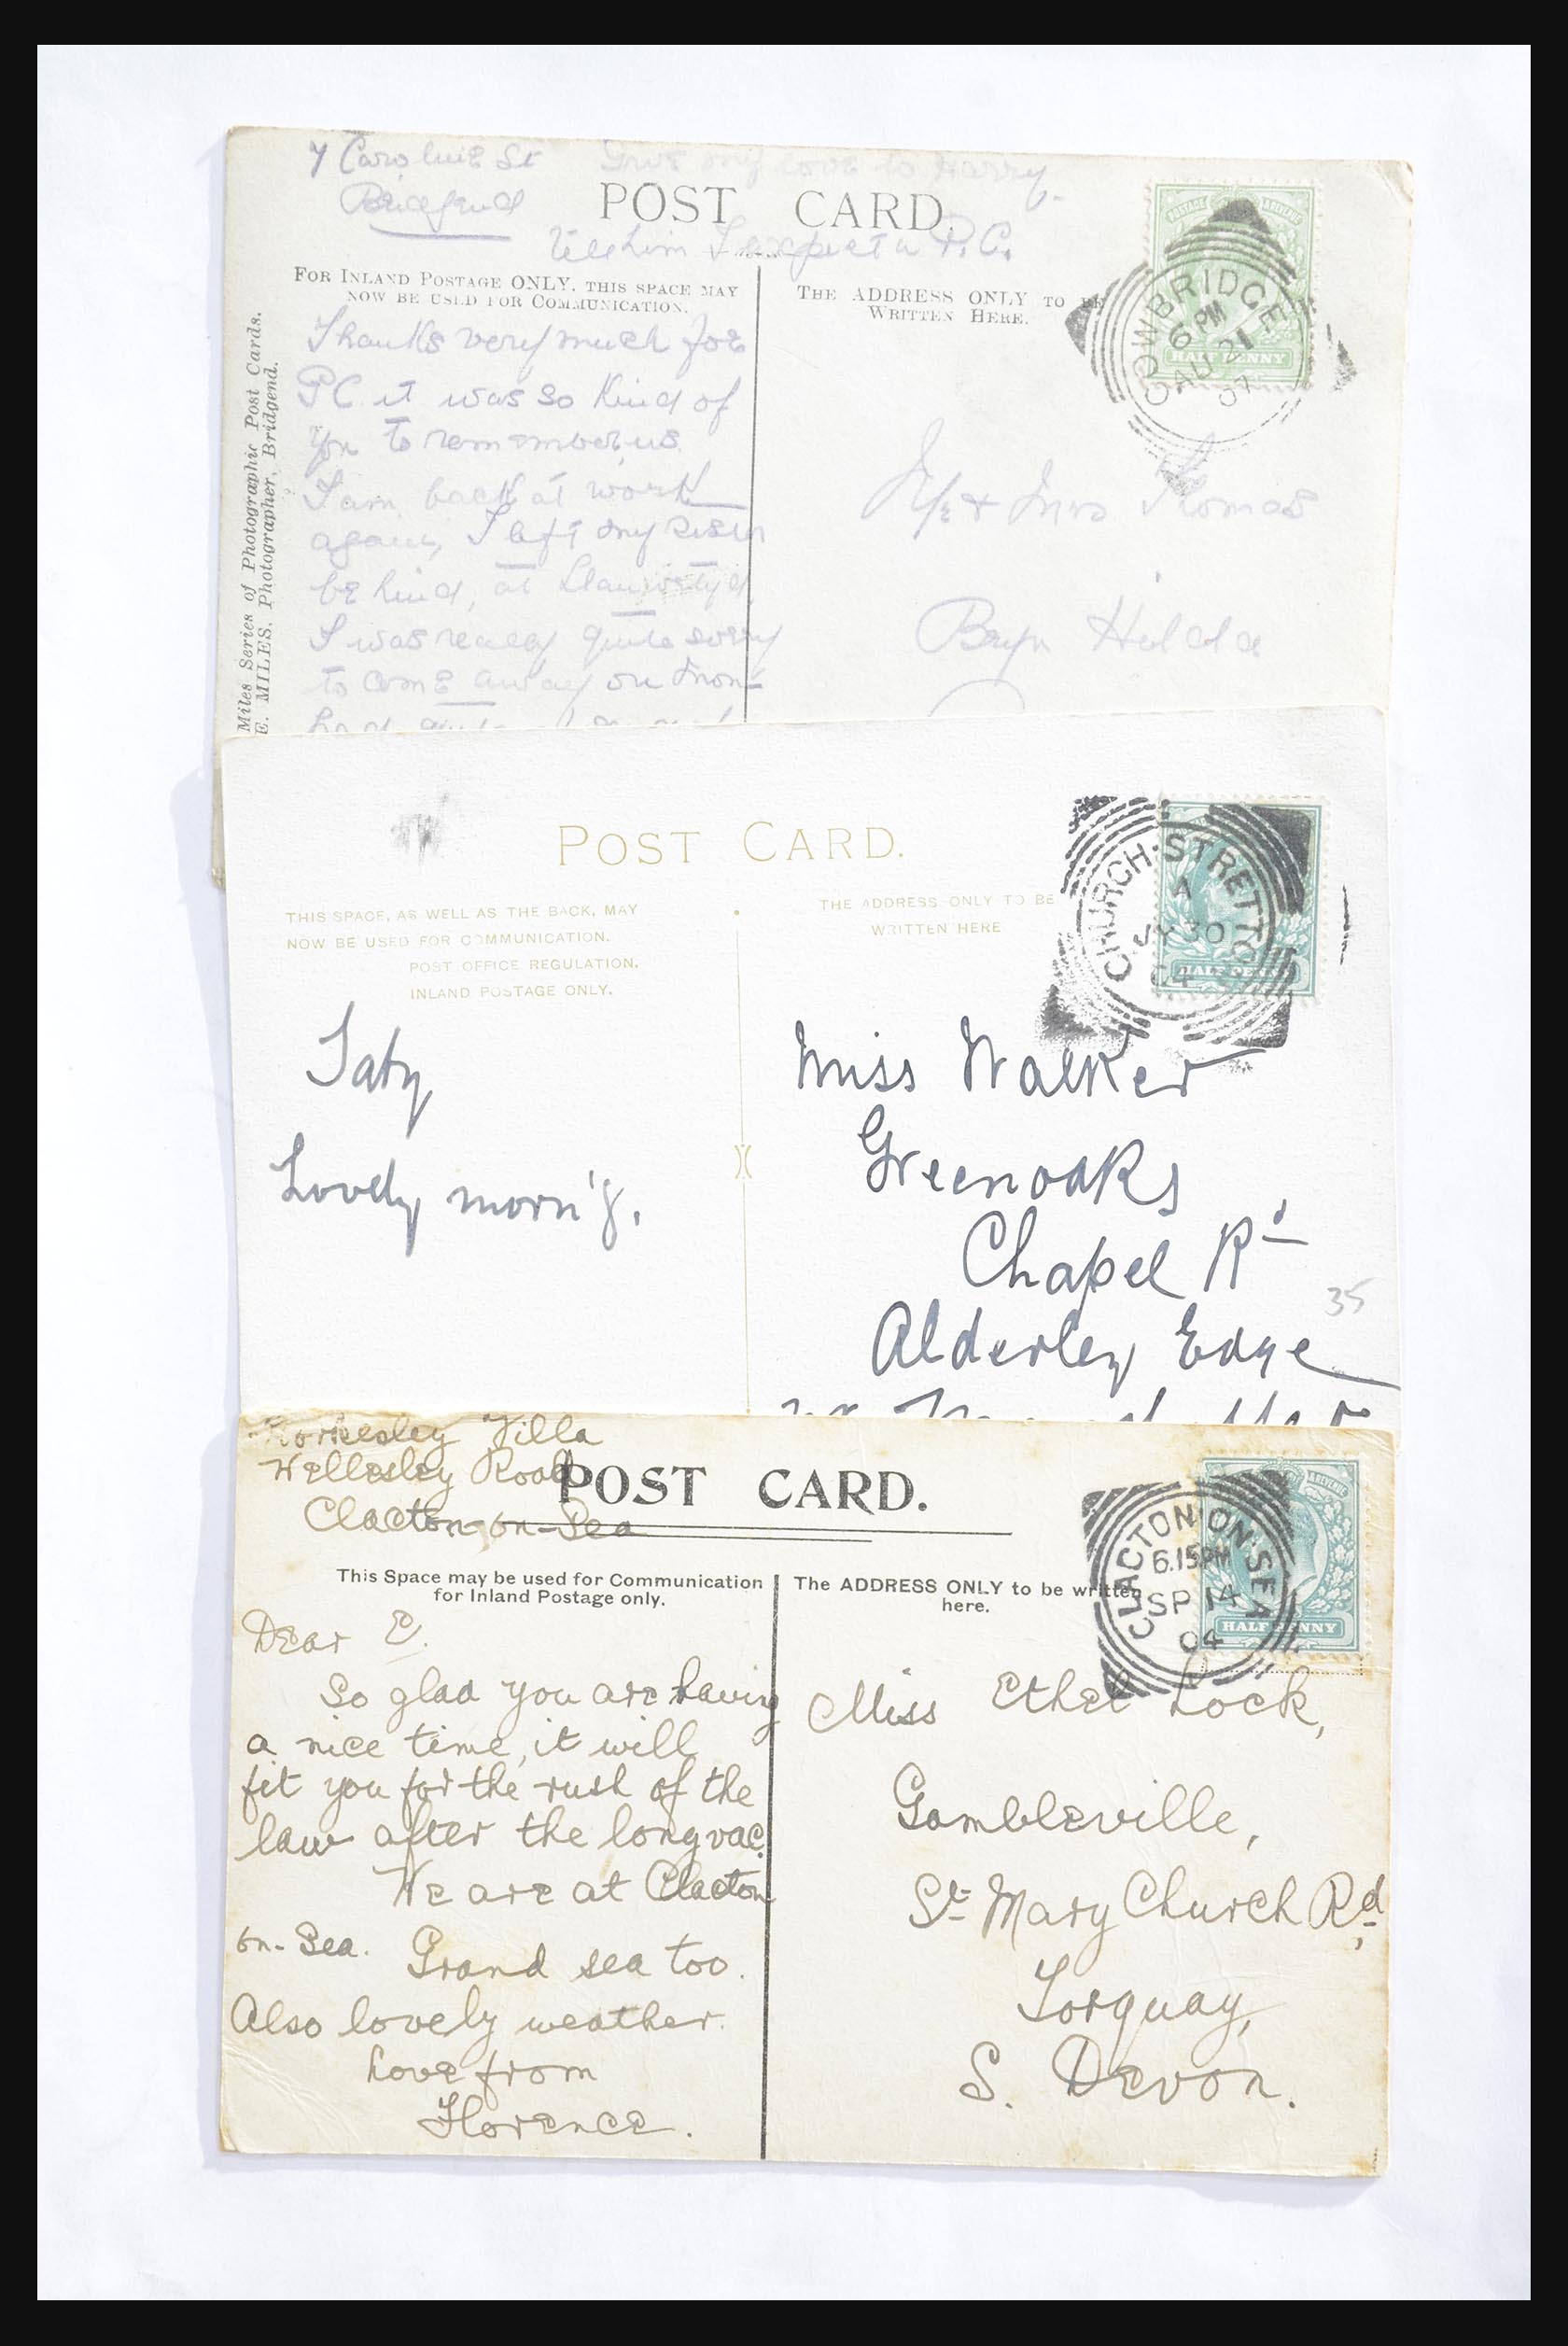 7 Caroline St
Bridgend
Give my love to Harry.
tell him I expect a P.C.
POST CARD.
FOR INLAND POSTAGE ONLY, THIS SPACE MAY
NOW BE USED FOR COMMUNICATION.
THE ADDRESS ONLY TO BE
WRITTEN HERE.
Miles Series of Photographic Post Cards.
E. MILES, Photographer, Bridgend.
COWBRIDGE
6 PM
AU 21
07
HALF PENNY
Thanks very much for
PC it was so kind of
you to remember us.
I am back at work
again, I left my sister
behind, at
I was really quite sorry
to come away on Mon-
Mr & Mrs Thomas
Bryn Hilda
POST CARD.
THIS SPACE, AS WELL AS THE BACK, MAY
NOW BE USED FOR COMMUNICATION.
POST OFFICE REGULATION.
INLAND POSTAGE ONLY.
THE ADDRESS ONLY TO BE
WRITTEN HERE
CHURCH-STRETTON
A
JY 30
04
HALF PENNY
Saty
Lovely morn'g.
Miss Walker
Greenoaks
Chapel Rd
Alderley Edge
35
Villa
Wellesley Road
Clacton-on-Sea
POST CARD.
This Space may be used for Communication
for Inland Postage only.
The ADDRESS ONLY to be written
here.
CLACTON-ON-SEA
6.15PM
SP 14
04
HALF PENNY
Dear E.
So glad you are having
a nice time, it will
fit you for the rush of the
law after the long vac.
We are at Clacton
on-Sea. Grand sea too.
Also lovely weather.
Love from
Florence.
Miss Ethel Lock,
Gambleville,
St Mary Church Rd,
Torquay,
S. Devon.